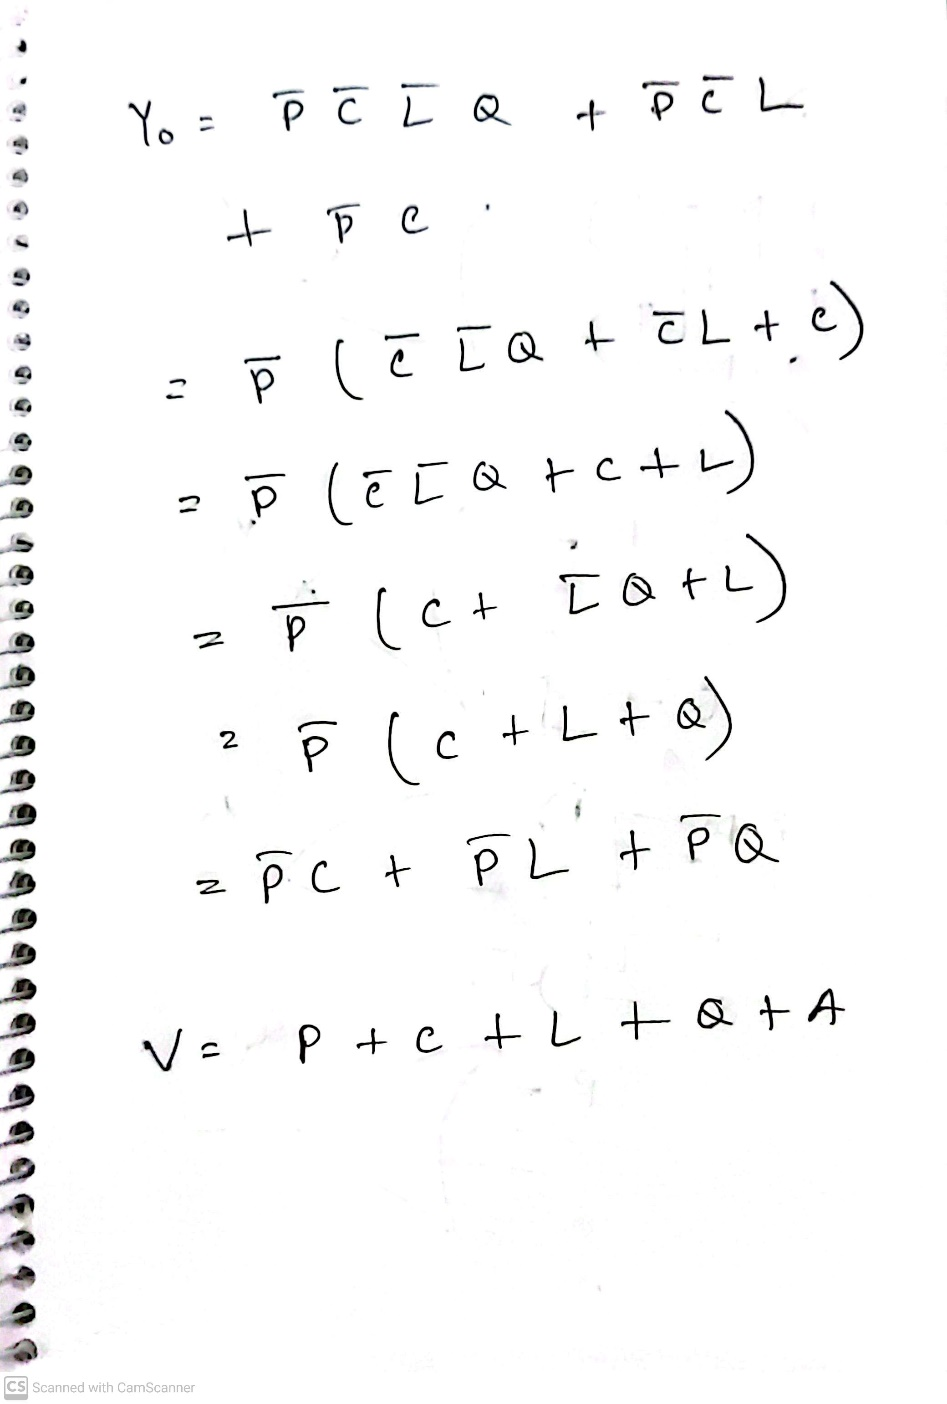 Y₀ = P̅ C̅ L̅ Q + P̅ C̅ L
+ P̅ C .
= P̅ ( C̅ L̅ Q + C̅ L + C )
= P̅ ( C̅ L̅ Q + C + L )
= P̅ ( C + L̅ Q + L )
= P̅ ( C + L + Q )
= P̅ C + P̅ L + P̅ Q
V = P + C + L + Q + A
CS Scanned with CamScanner